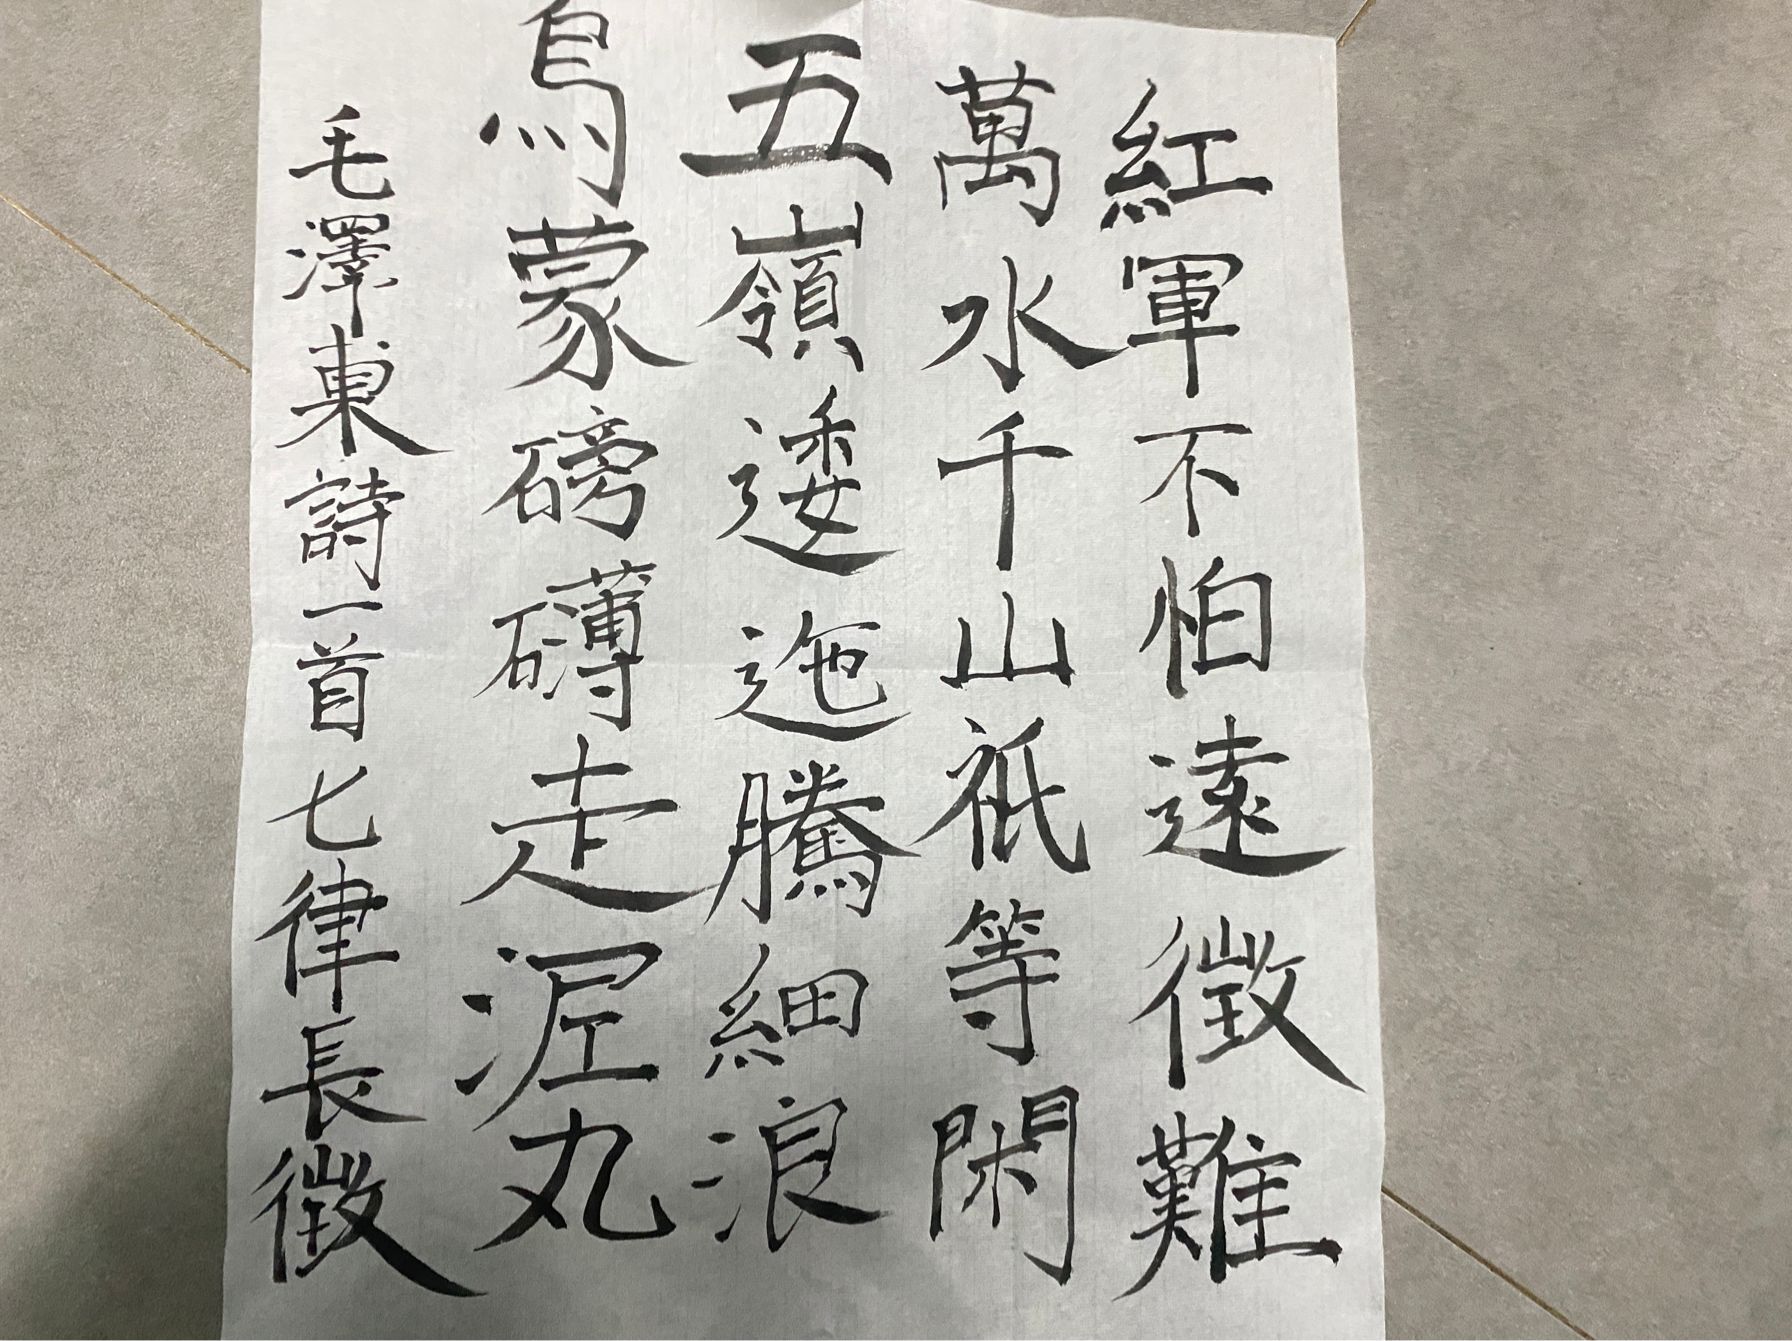 紅軍不怕遠徵難
萬水千山祇等閑
五嶺逶迤騰細浪
烏蒙磅礴走泥丸
毛澤東詩一首七律長徵